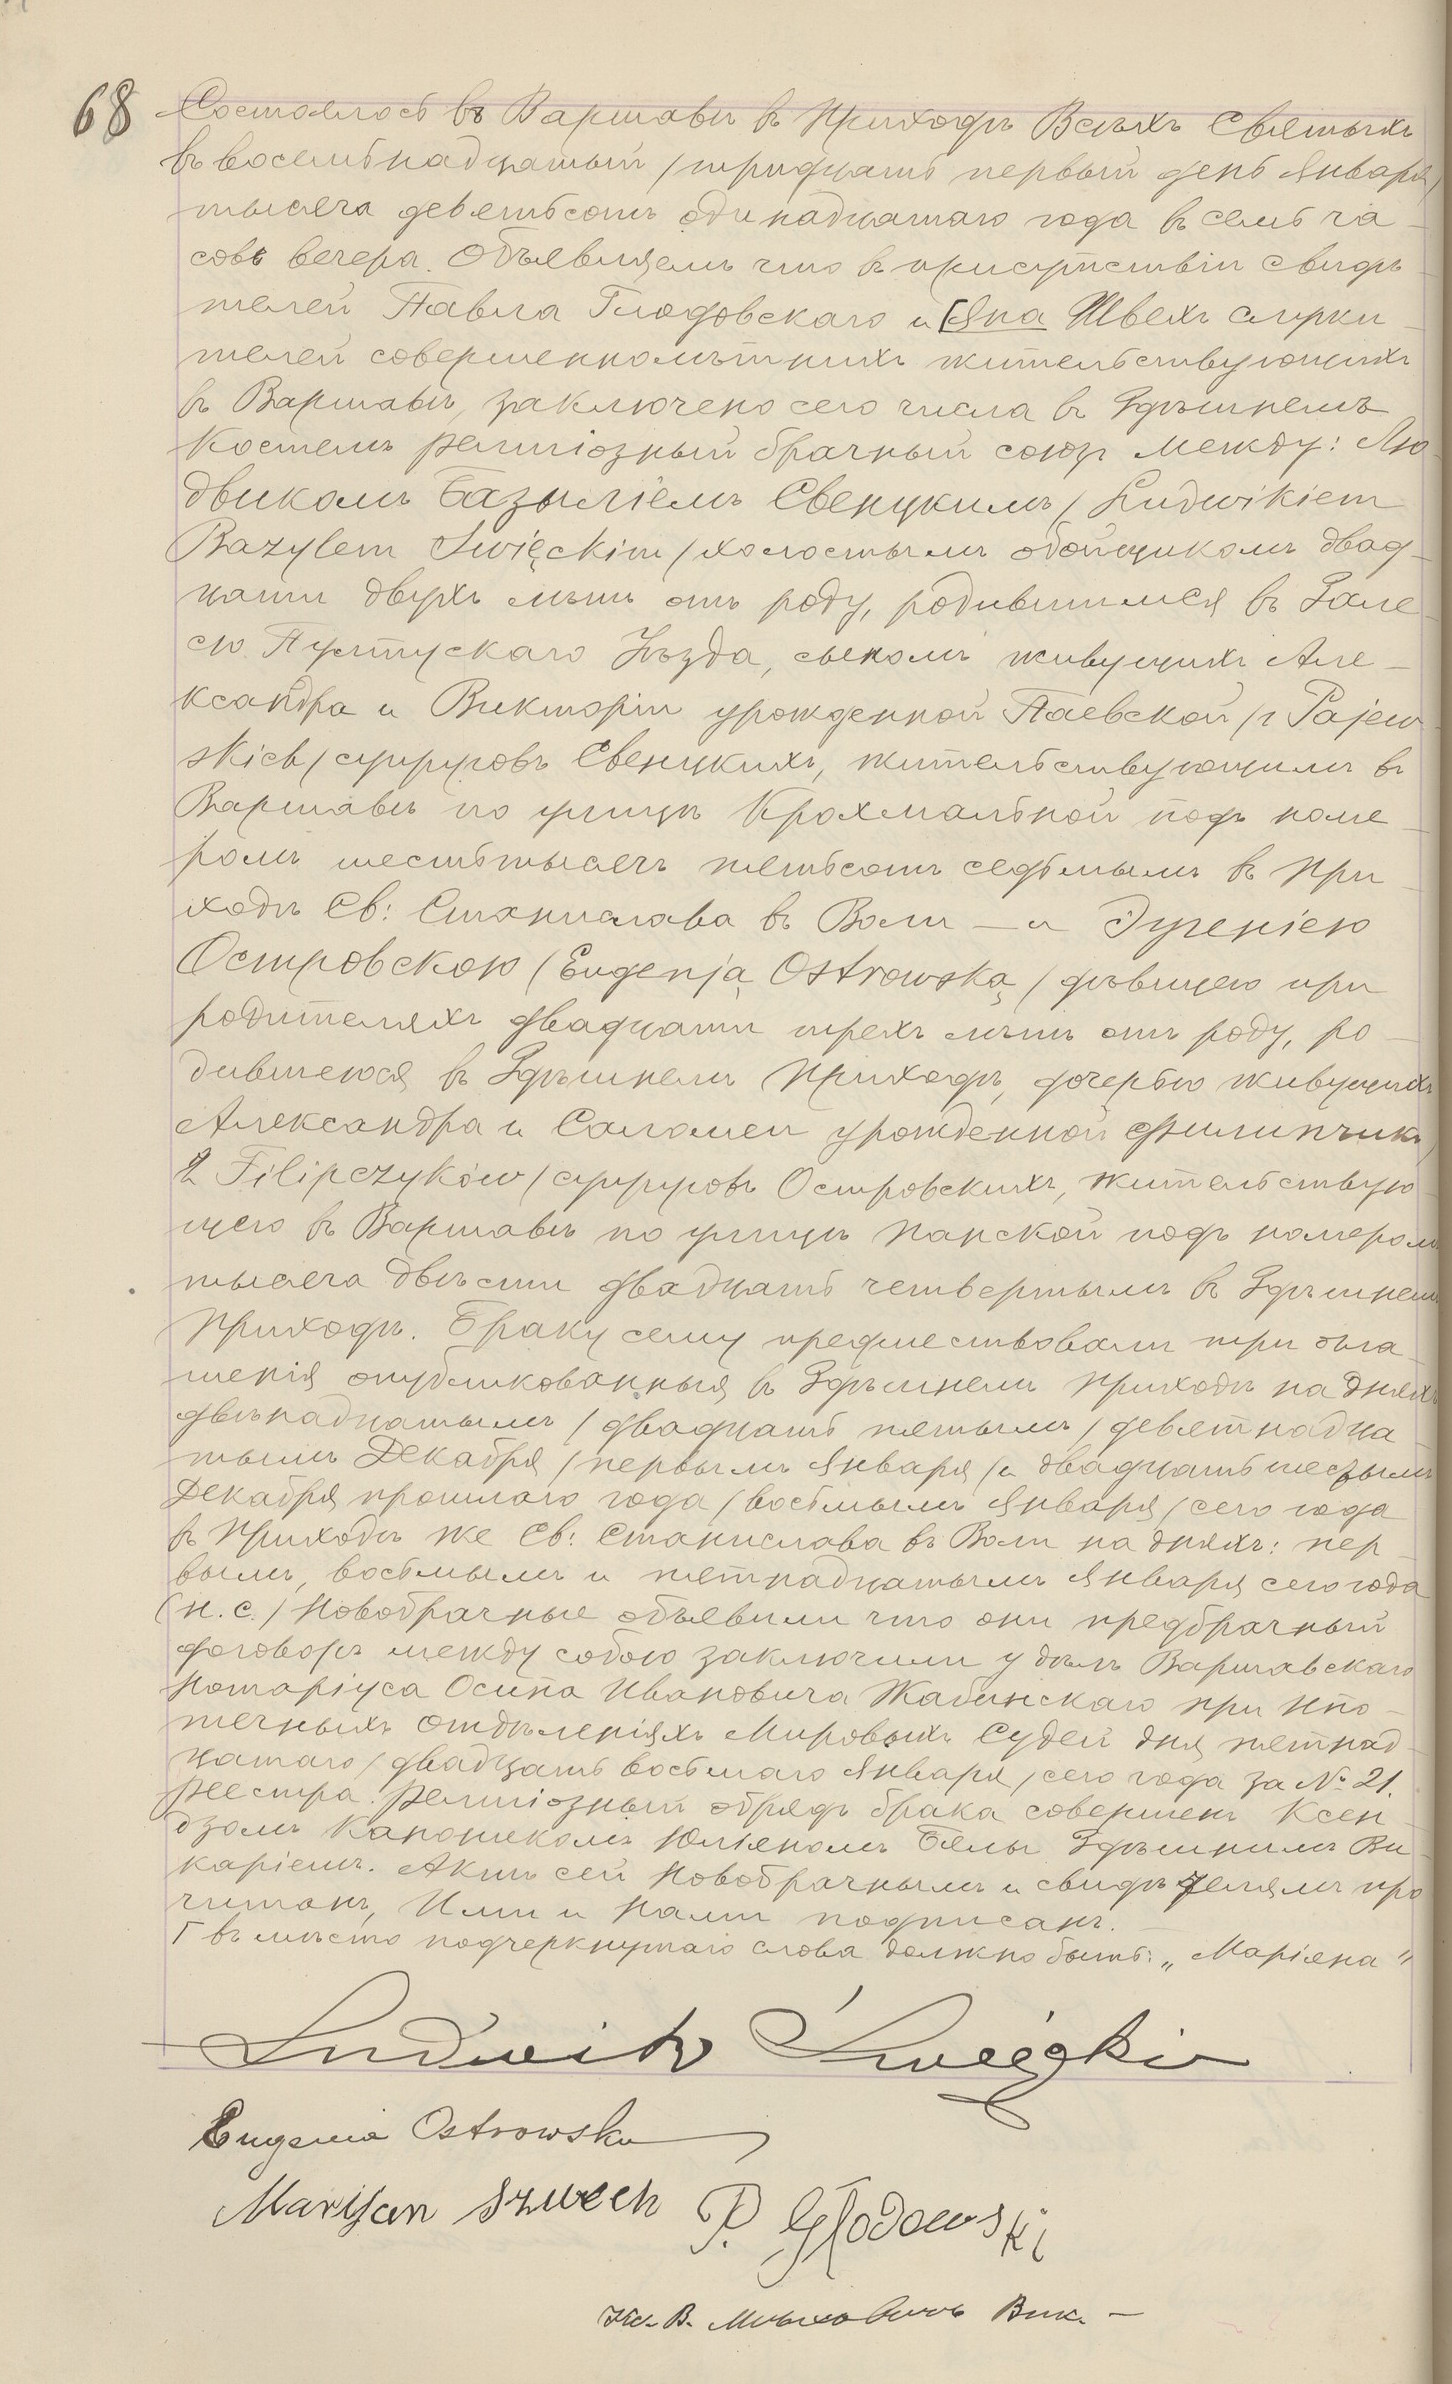 68
Состоялось въ Варшавѣ въ Приходѣ Всѣхъ Святыхъ
въ восемьнадцатый /тридцать первый день Января/
тысяча девятьсотъ одинадцатаго года въ семь ча-
совъ вечера. Объявляемъ что въ присутствіи свидѣ-
телей Павла Глодовскаго и [Яна Швехъ служи-
телей совершеннолѣтнихъ жительствующихъ
въ Варшавѣ, заключено сего числа въ здѣшнемъ
Костелѣ религіозный брачный союзъ между: Лю-
двикомъ Базыліемъ Свенцкимъ /Ludwikiem
Bazylem Święckim/ холостымъ обойщикомъ двад-
цати двухъ лѣтъ отъ роду, родившимся въ Зале-
сю Пултускаго Уѣзда, сыномъ живущихъ Але-
ксандра и Викторіи урожденной Паевской /z Pajew-
skich/ супруговъ Свенцкихъ, жительствующимъ въ
Варшавѣ по улицѣ Крохмальной подъ номе-
ромъ шестьтысячъ пятьсотъ седьмымъ въ При-
ходѣ Св: Станислава въ Воли — и Эугеніею
Островскою /Eugenją Ostrowską/ дѣвицею при
родителяхъ двадцати трехъ лѣтъ отъ роду, ро-
дившеюся въ Здѣшнемъ Приходѣ, дочерью живущихъ
Александра и Саломеи урожденной Филипчикъ/
z Filipczyków/ супруговъ Островскихъ, жительствую-
щею въ Варшавѣ по улицѣ Панской подъ номеромъ
тысяча двѣсти двадцать четвертымъ въ Здѣшнемъ
Приходѣ. Браку сему предшествовали три огла-
шенія опубликованныя въ Здѣшнемъ Приходѣ на дняхъ
двѣнадцатымъ /двадцать пятымъ/ девятнадца-
тымъ Декабря /первымъ Января/ и двадцать шестымъ
Декабря прошлаго года /восьмымъ Января/ сего года
въ Приходѣ же Св: Станислава въ Воли на дняхъ: пер-
вымъ, восьмымъ и пятнадцатымъ Января сего года
(н. с./ Новобрачные объявили что они предбрачный
договоръ между собою заключили у дѣлъ Варшавскаго
Нотаріуса Осипа Ивановича Жабинскаго при Ипо-
течныхъ Отдѣленіяхъ Мировыхъ Судей дня пятнад-
цатаго /двадцать восьмаго Января/ сего года за № 21.
реестра. Религіозный обрядъ брака совершенъ Ксен-
дзомъ Каноникомъ Юліяномъ Бялы Здѣшнимъ Ви-
каріемъ. Актъ сей Новобрачнымъ и свидѣтелямъ про-
читанъ, Ими и Нами подписанъ. —
Г вмѣсто подчеркнутаго слова должно быть: „Маріяна"
Ludwik Święcki
Eugenia Ostrowska
Maryjan Szwech P. Głodowski
Кс. В. Вик. —